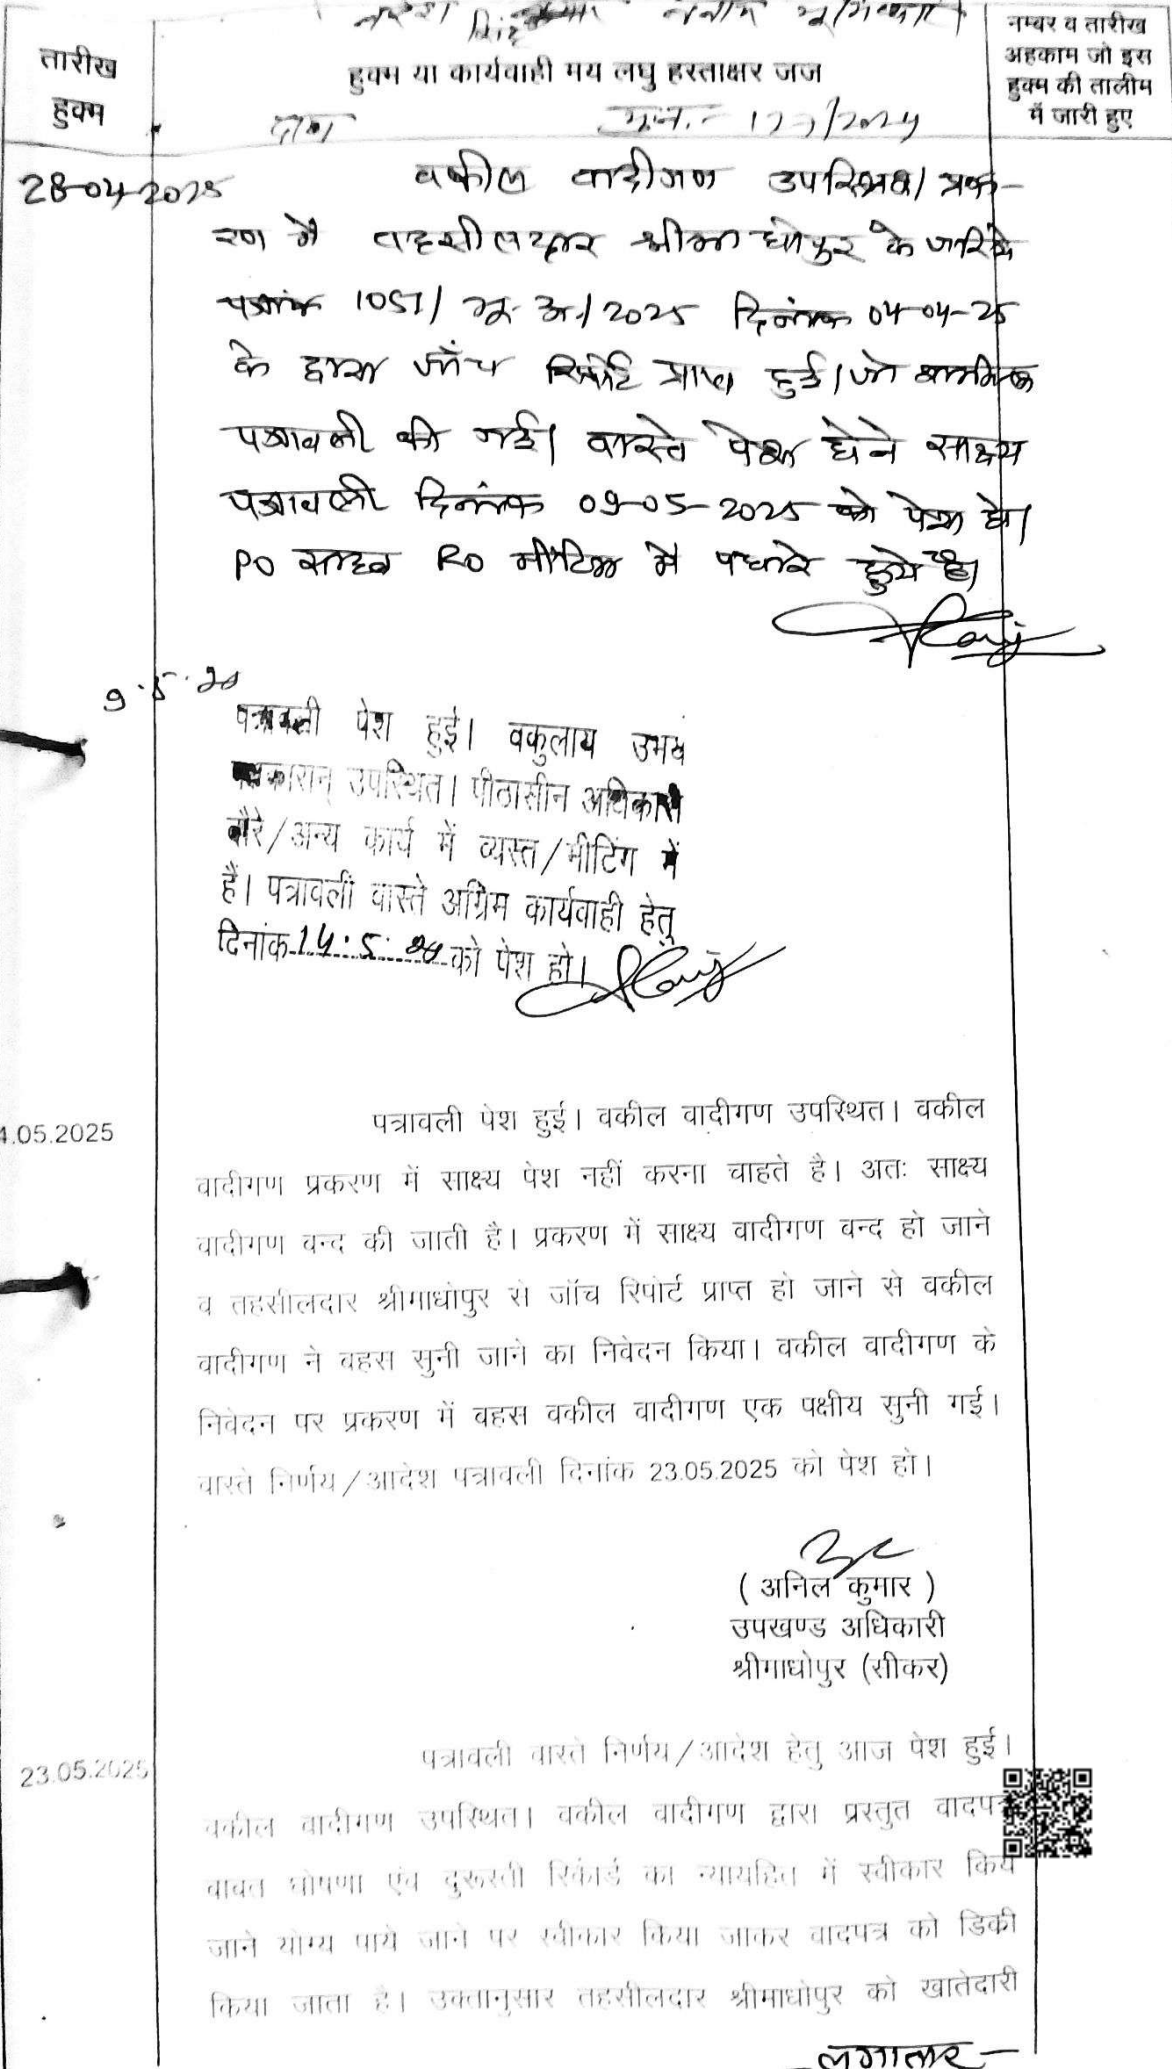 तारीख
हुक्म
हुक्म या कार्यवाही मय लघु हस्ताक्षर जज
नम्बर व तारीख
अहकाम जो इस
हुक्म की तालीम
में जारी हुए
28-04-2025
वकील वादीगण उपस्थित। प्रक-
रण में तहसीलदार श्रीमाधोपुर के जरिये
पत्रांक 1051/भू.अ./2025 दिनांक 04-04-25
के द्वारा जाँच रिपोर्ट प्राप्त हुई। जो शामिल
पत्रावली की गई। वास्ते पेश होने साक्ष्य
पत्रावली दिनांक 09-05-2025 को पेश हो।
PO साहब RO मीटिंग में पधारे हुये है।
9.5.25
पत्रावली पेश हुई। वकुलाय उभय
पक्षकारान् उपस्थित। पीठासीन अधिकारी
दौरे/अन्य कार्य में व्यस्त/मीटिंग में
हैं। पत्रावली वास्ते अग्रिम कार्यवाही हेतु
दिनांक 14.5.25 को पेश हो।
4.05.2025
पत्रावली पेश हुई। वकील वादीगण उपस्थित। वकील
वादीगण प्रकरण में साक्ष्य पेश नहीं करना चाहते है। अतः साक्ष्य
वादीगण बन्द की जाती है। प्रकरण में साक्ष्य वादीगण बन्द हो जाने
व तहसीलदार श्रीमाधोपुर से जॉच रिपोर्ट प्राप्त हो जाने से वकील
वादीगण ने बहस सुनी जाने का निवेदन किया। वकील वादीगण के
निवेदन पर प्रकरण में बहस वकील वादीगण एक पक्षीय सुनी गई।
वास्ते निर्णय/आदेश पत्रावली दिनांक 23.05.2025 को पेश हो।
( अनिल कुमार )
उपखण्ड अधिकारी
श्रीमाधोपुर (सीकर)
23.05.2025
पत्रावली वास्ते निर्णय/आदेश हेतु आज पेश हुई।
वकील वादीगण उपस्थित। वकील वादीगण द्वारा प्रस्तुत वादपत्र
बाबत घोषणा एंव दुरूस्ती रिकॉर्ड का न्यायहित में स्वीकार किये
जाने योग्य पाये जाने पर स्वीकार किया जाकर वादपत्र को डिकी
किया जाता है। उक्तानुसार तहसीलदार श्रीमाधोपुर को खातेदारी
लगातार-